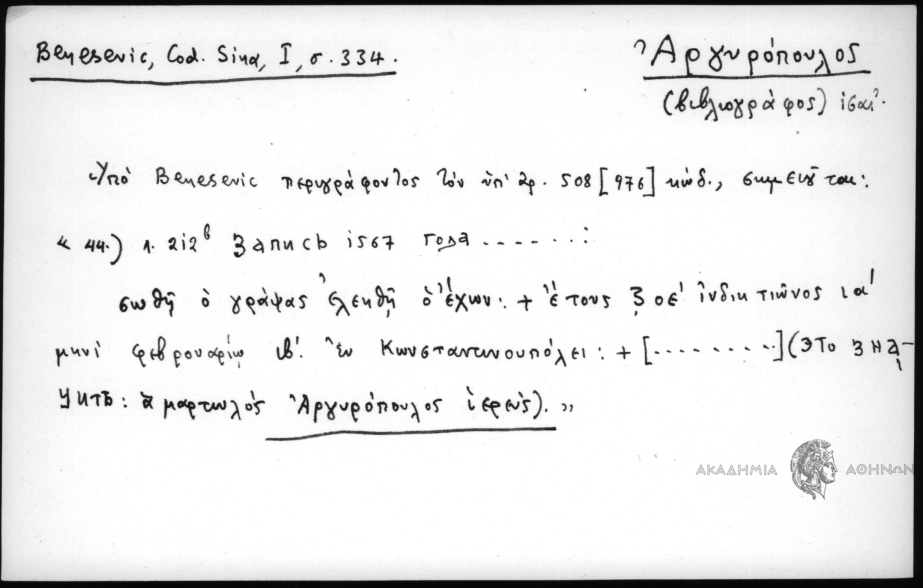 Benesevic, Cod. Sina, I, σ. 334.
Ἀργυρόπουλος
(βιβλιογράφος)
Ὑπὸ Benesevic περιγράφοντος τὸν ὑπ' ἀρ. 508 [976] κώδ., σημειοῦται:
« 44.) л. 212 в Запись 1567 года .......:
σωθῇ ὁ γράψας ἐλεηθῇ ὁ ἔχων: + ἔτους ζοε' ἰνδικτιῶνος ια'
μηνὶ φεβρουαρίῳ ιβ'. ἐν Κωνσταντινουπόλει: + [.........] (это зна-
читъ: ἁμαρτωλὸς Ἀργυρόπουλος ἱερεὺς). »
ΑΚΑΔΗΜΙΑ ΑΘΗΝΩΝ